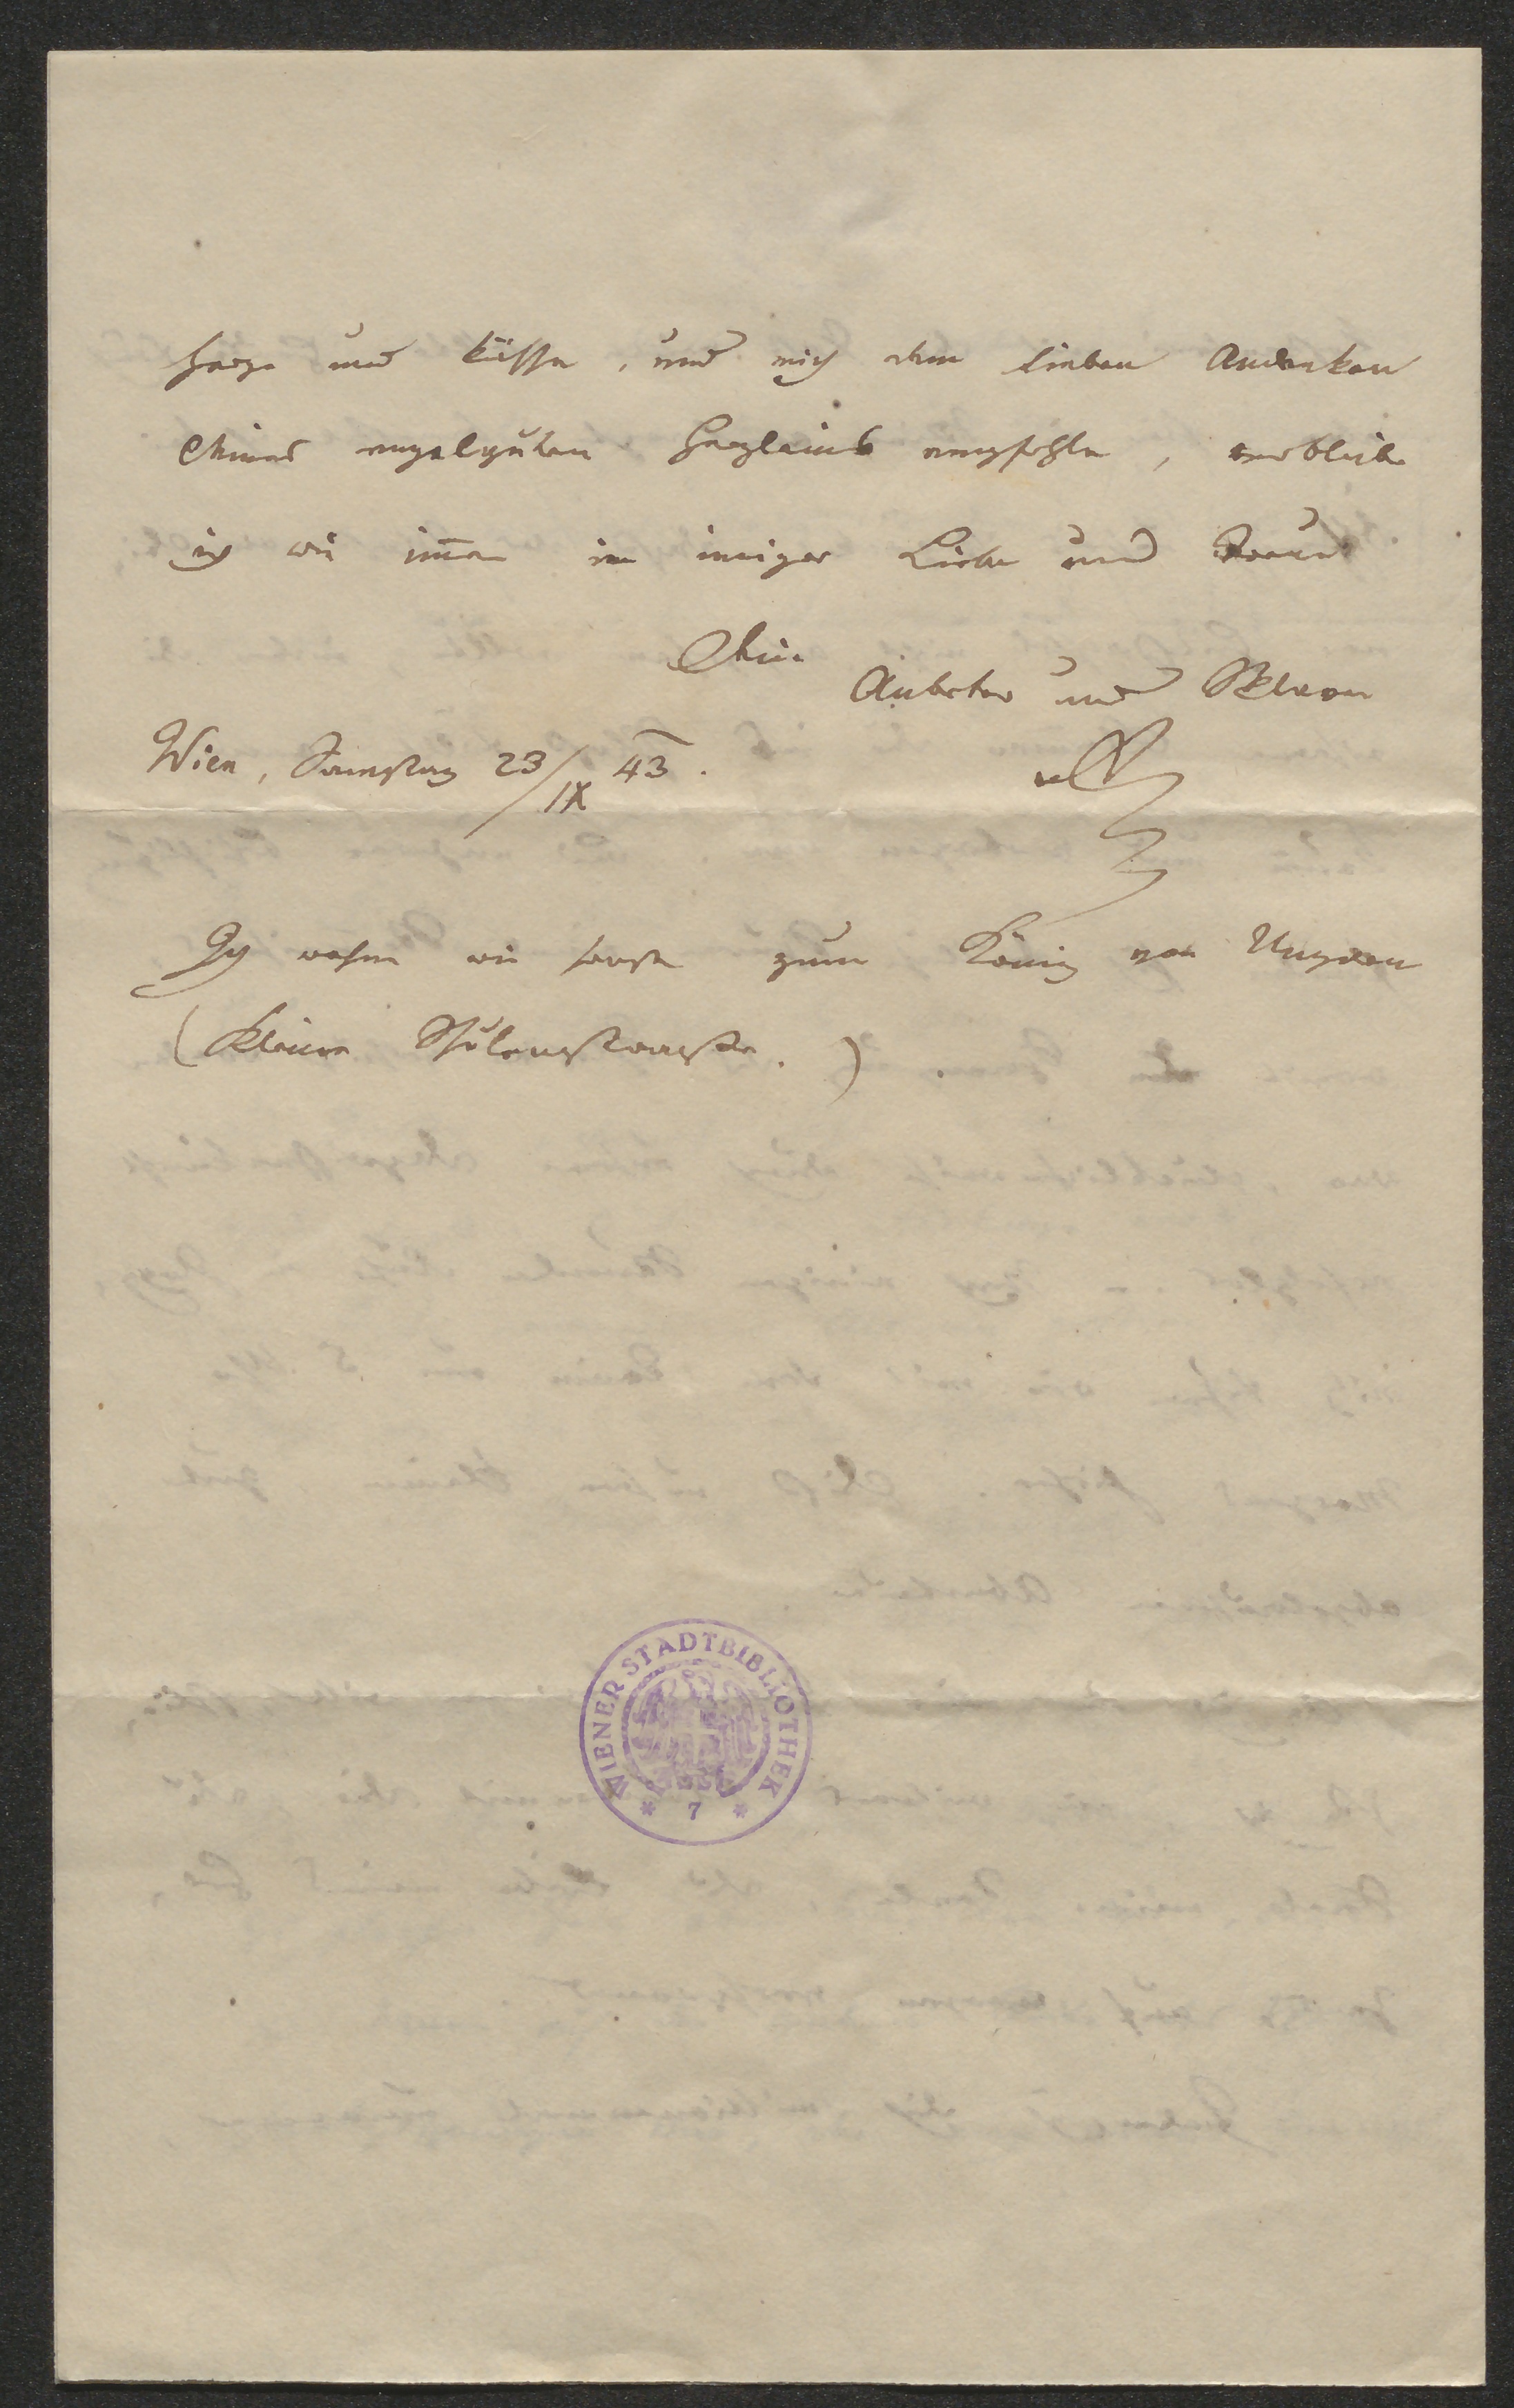 herze und küsse, und mich dem lieben Andenken
Deines engelguten Herzleins empfehle, verbleibe
ich wie immer in inniger Liebe und Treue
Dein
Anbeter und Sklave
Wien, Samstag 23/IX 43.
Ich wohne wie sonst zum König von Ungarn
(kleine Schulenstrasse.)
WIENER STADTBIBLIOTHEK
* 7 *